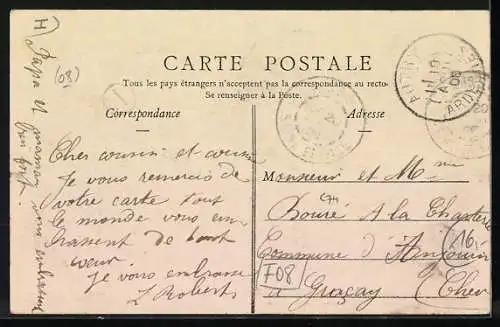 CARTE POSTALE
Tous les pays étrangers n'acceptent pas la correspondance au recto.
Se renseigner à la Poste.
Correspondance
Adresse
Cher cousin et cousine
Je vous remercie de
votre carte tout
le monde vous em
brassent de tout
cœur
Je vous embrasse
L Roberts
Papa et maman vous embrasse
H)
(08)
Monsieur et Mme
Boure A la
Commune d'Anjouin
à Graçay (Cher
F08
16.-